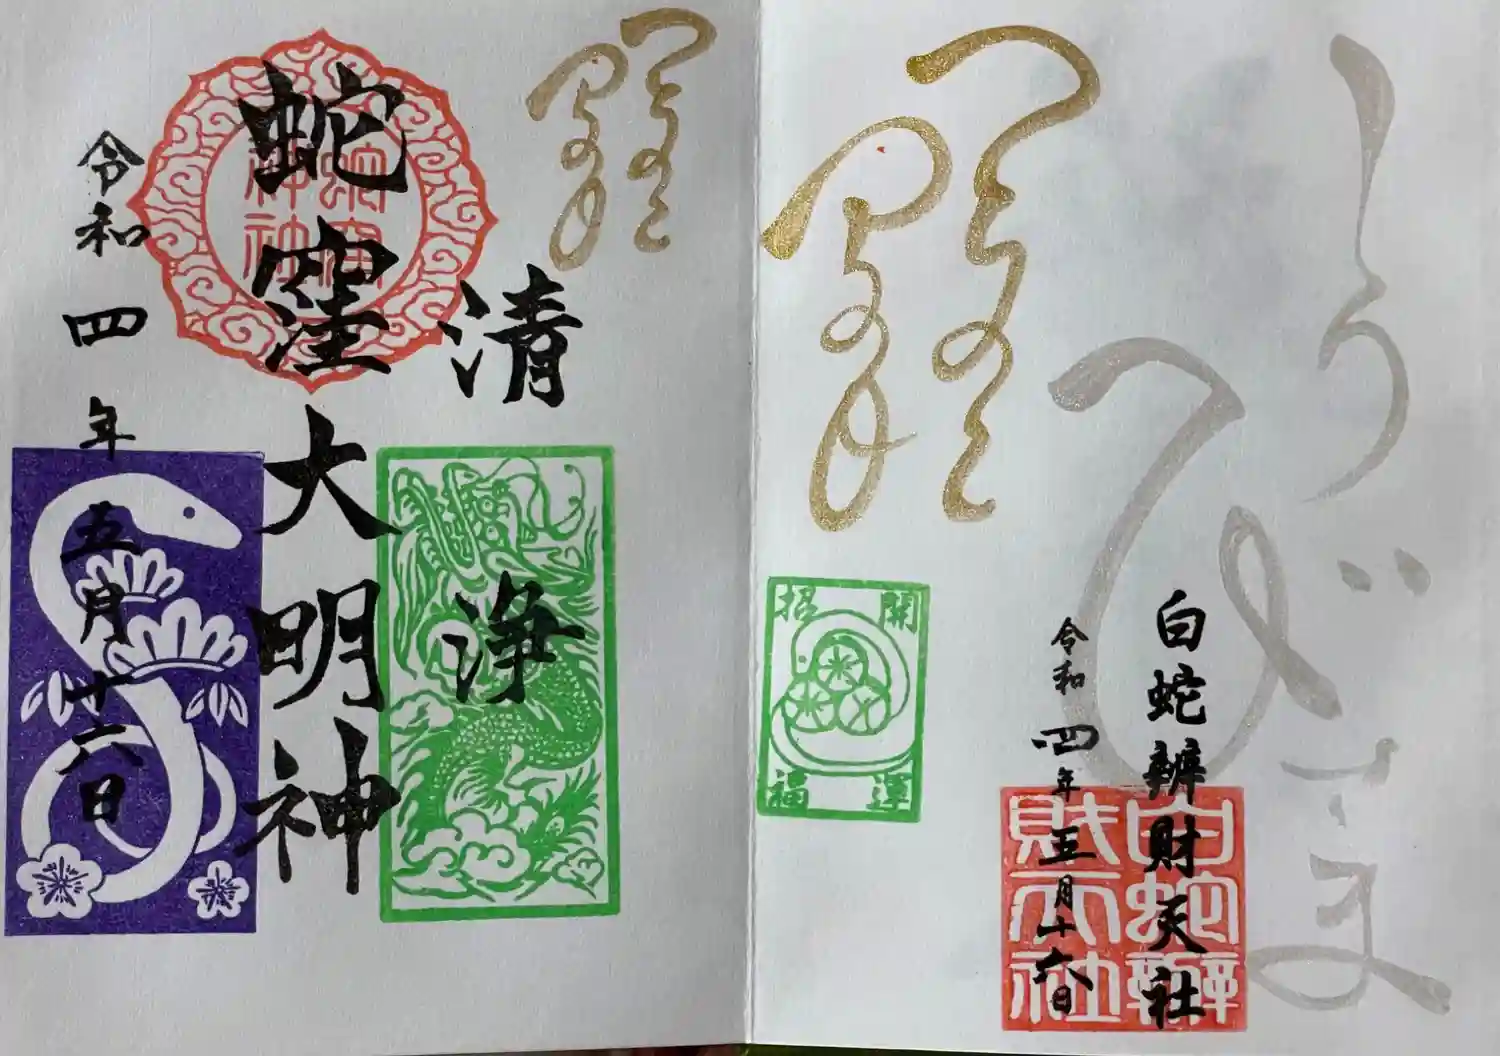 白蛇辨財天社
白蛇辨
財天社
令和四年五月十六日
開運
招福
清浄
蛇窪大明神
蛇窪
神社
令和四年五月十六日